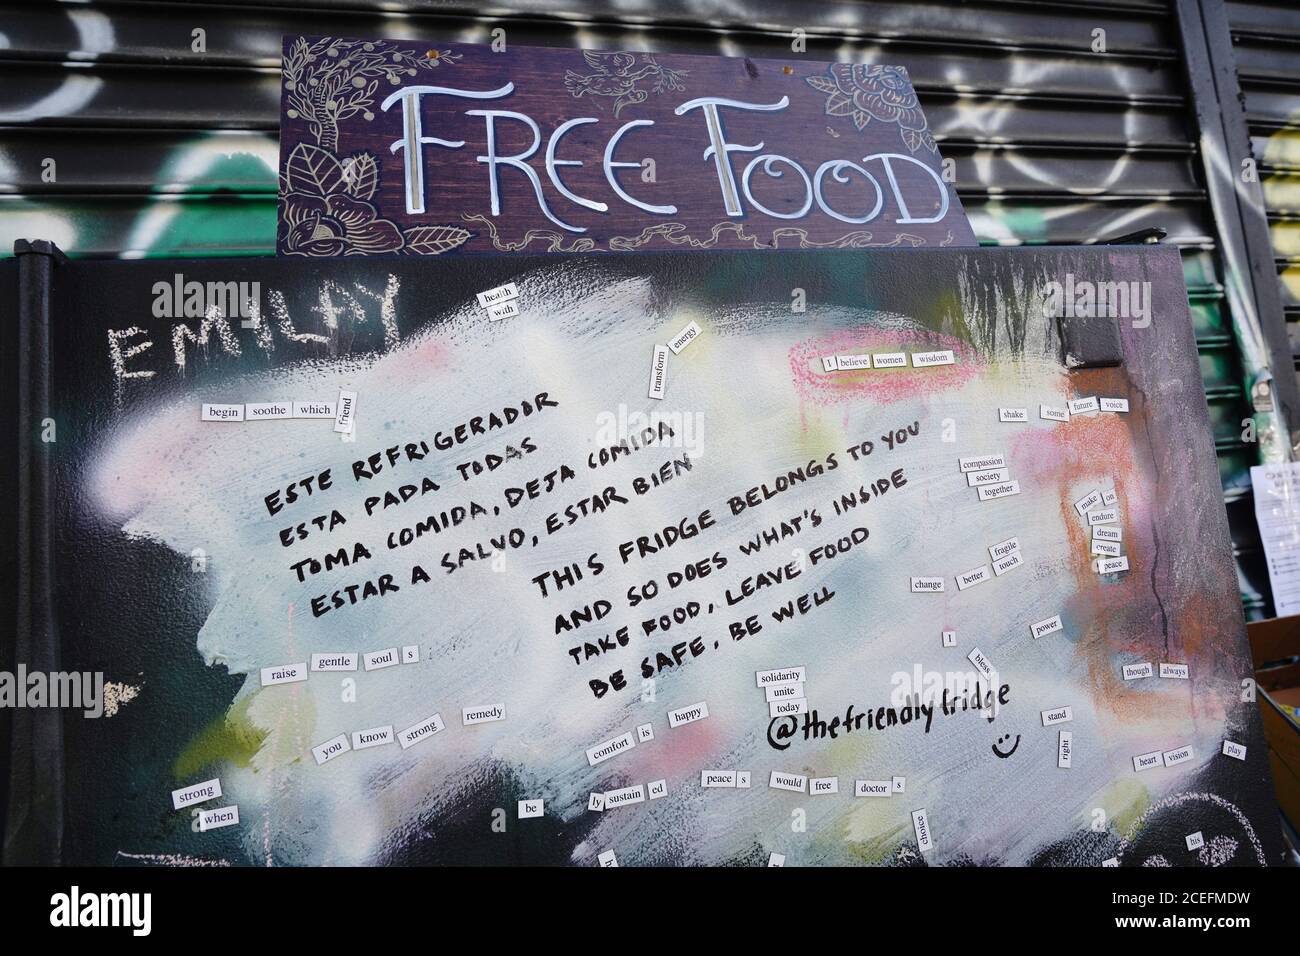 FREE FOOD
EMILY
health
with
transform
energy
I believe women wisdom
begin soothe which friend
shake some future voice
ESTE REFRIGERADOR
ESTA PADA TODAS
TOMA COMIDA, DEJA COMIDA
ESTAR A SALVO, ESTAR BIEN
THIS FRIDGE BELONGS TO YOU
AND SO DOES WHAT'S INSIDE
TAKE FOOD, LEAVE FOOD
BE SAFE, BE WELL
@thefriendlyfridge
compassion
society
together
make on
endure
dream
create
peace
fragile
change better touch
I
bless
power
though always
raise gentle soul s
solidarity
unite
today
you know strong remedy
comfort is happy
stand
right
heart vision play
strong
when
be
ly sustain ed
peace s
would free doctor s
choice
his
alamy
Image ID: 2CEFMDW
www.alamy.com